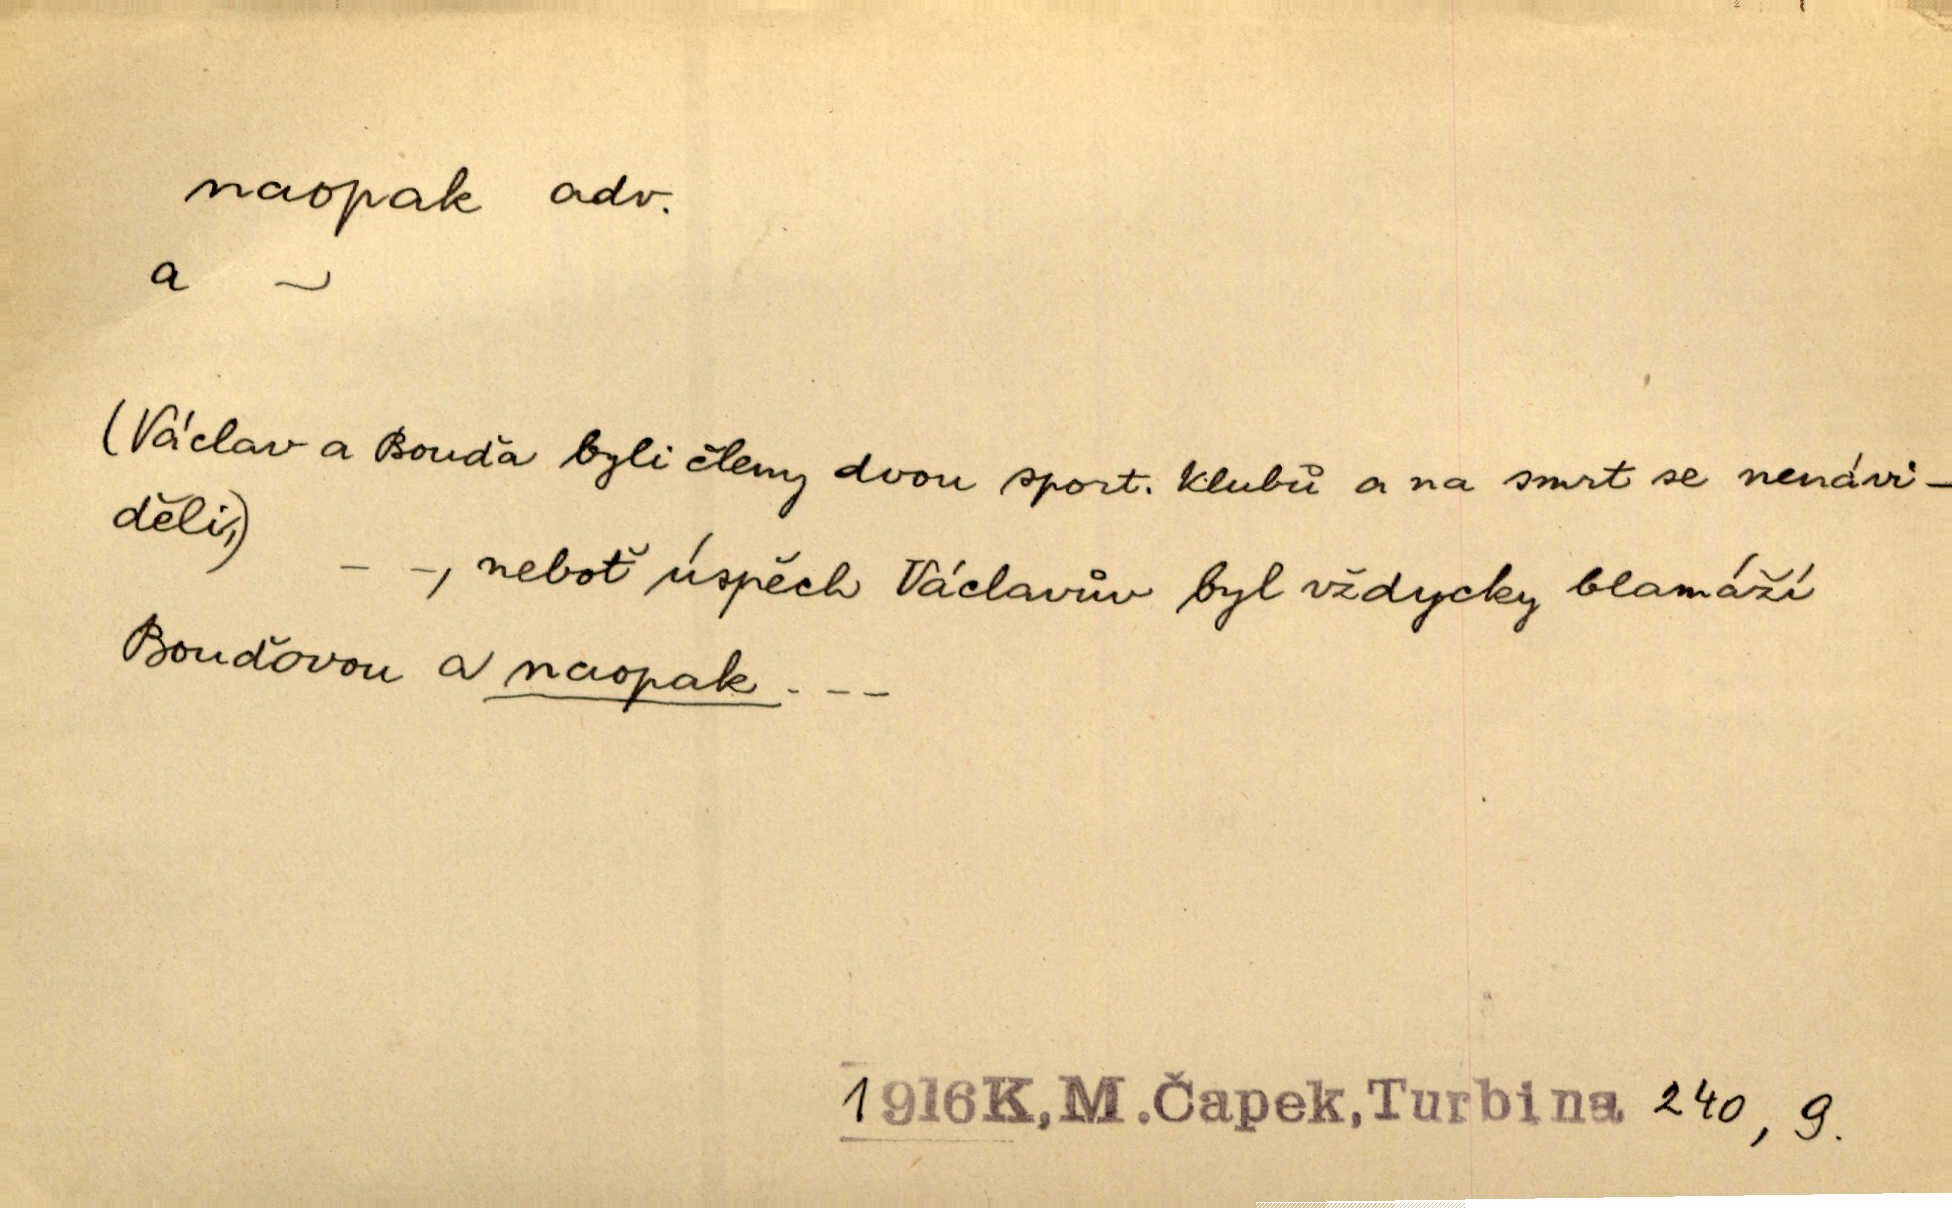 naopak adv.
a ~
(Václav a Bouďa byli členy dvou sport. klubů a na smrt se nenávi-
děli,)
- -, neboť úspěch Václavův byl vždycky blamáží
Bouďovou a naopak . - -
1916K,M.Čapek,Turbina 240, 9.